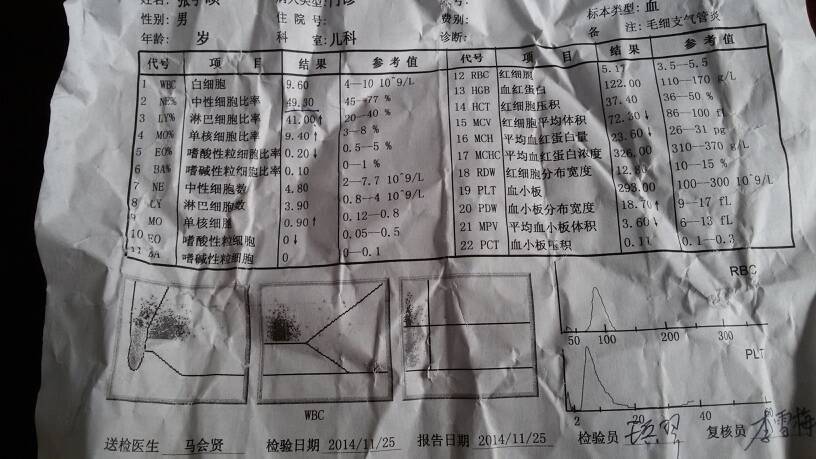 姓名: 病人类型:门诊 标本类型: 血
性别: 男 住 院 号: 费别: 备 注: 毛细支气管炎
年龄: 岁 科 室:儿科 诊断:
代号 项 目 结 果 参 考 值 代号 项 目 结 果 参 考 值
1 WBC 白细胞 9.60 4—10 10^9/L 12 RBC 红细胞 5.17 3.5—5.5
2 NE% 中性细胞比率 49.30 45—77 % 13 HGB 血红蛋白 122.00 110—170 g/L
3 LY% 淋巴细胞比率 41.00↑ 20—40 % 14 HCT 红细胞压积 37.40 36—50 %
4 MO% 单核细胞比率 9.40↑ 3—8 % 15 MCV 红细胞平均体积 72.30↓ 86—100 fL
5 EO% 嗜酸性粒细胞比率 0.20↓ 0.5—5 % 16 MCH 平均血红蛋白量 23.60↓ 26—31 pg
6 BA% 嗜碱性粒细胞比率 0.10 0—1 % 17 MCHC 平均血红蛋白浓度 326.00 310—370 g/L
7 NE 中性细胞数 4.80 2—7.7 10^9/L 18 RDW 红细胞分布宽度 12.80 10—15 %
8 LY 淋巴细胞数 3.90 0.8—4 10^9/L 19 PLT 血小板 293.00 100—300 10^9/L
9 MO 单核细胞 0.90↑ 0.12—0.8 20 PDW 血小板分布宽度 18.70↑ 9—17 fL
10 EO 嗜酸性粒细胞 0↓ 0.05—0.5 21 MPV 平均血小板体积 3.60↓ 6—13 fL
11 BA 嗜碱性粒细胞 0 0—0.1 22 PCT 血小板压积 0.11 0.1—0.3
RBC
50 100 200 300
PLT
2 20 40 60
WBC
送检医生 马会贤 检验日期 2014/11/25 报告日期 2014/11/25 检验员 复核员 李雪梅